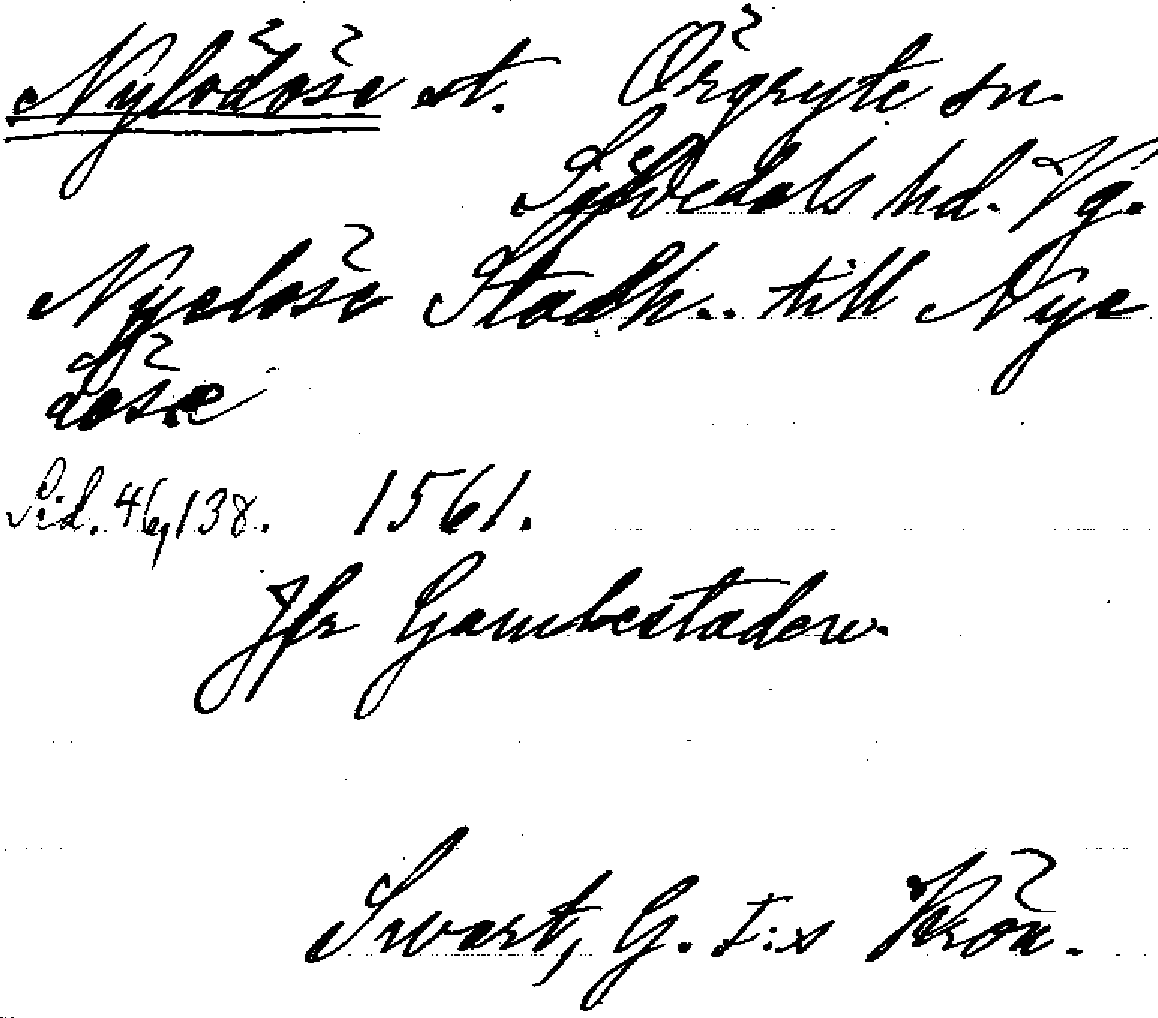 Nylödöse st. Örgryte sn.
Sävedals hd. Vg.
Nyelöse Stadh.. till Nye
löse
Sid. 46, 138. 1561.
Jfr Gambestaden.
Swart, G. I:s Krön.